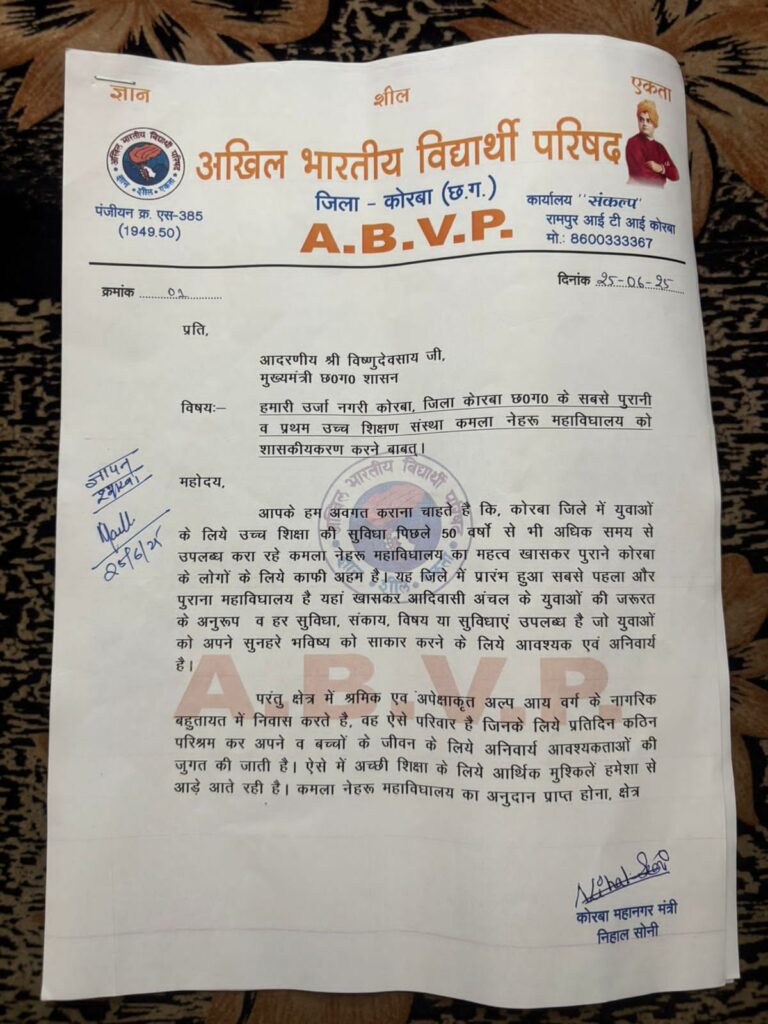 ज्ञान
शील
एकता
अखिल भारतीय विद्यार्थी परिषद
जिला - कोरबा (छ.ग.)
A.B.V.P.
पंजीयन क्र. एस-385
(1949.50)
कार्यालय "संकल्प"
रामपुर आई टी आई कोरबा
मो.: 8600333367
क्रमांक 01
दिनांक 25-06-25
प्रति,
आदरणीय श्री विष्णुदेवसाय जी,
मुख्यमंत्री छ0ग0 शासन
विषयः– हमारी उर्जा नगरी कोरबा, जिला केारबा छ0ग0 के सबसे पुरानी
व प्रथम उच्च शिक्षण संस्था कमला नेहरू महाविघालय को
शासकीयकरण करने बाबत्।
महोदय,
आपके हम अवगत कराना चाहते है कि, कोरबा जिले में युवाओं
के लिये उच्च शिक्षा की सुविधा पिछले 50 वर्षो से भी अधिक समय से
उपलब्ध करा रहे कमला नेहरू महाविघालय का महत्व खासकर पुराने कोरबा
के लोगों के लिये काफी अहम है। यह जिले में प्रारंभ हुआ सबसे पहला और
पुराना महाविघालय है यहां खासकर आदिवासी अंचल के युवाओं की जरूरत
के अनुरूप व हर सुविधा, संकाय, विषय या सुविधाएं उपलब्ध है जो युवाओं
को अपने सुनहरे भविष्य को साकार करने के लिये आवश्यक एवं अनिवार्य
है।
परंतु क्षेत्र में श्रमिक एव अपेक्षाकृत अल्प आय वर्ग के नागरिक
बहुतायत में निवास करते है, वह ऐसे परिवार है जिनके लिये प्रतिदिन कठिन
परिश्रम कर अपने व बच्चों के जीवन के लिये अनिवार्य आवश्यकताओं की
जुगत की जाती है। ऐसे में अच्छी शिक्षा के लिये आर्थिक मुश्किलें हमेशा से
आड़े आते रही है। कमला नेहरू महाविघालय का अनुदान प्राप्त होना, क्षेत्र
ज्ञापन
25/6/25
A.B.V.P.
अखिल भारतीय विद्यार्थी परिषद
ज्ञान शील एकता
Nihal Soni
कोरबा महानगर मंत्री
निहाल सोनी